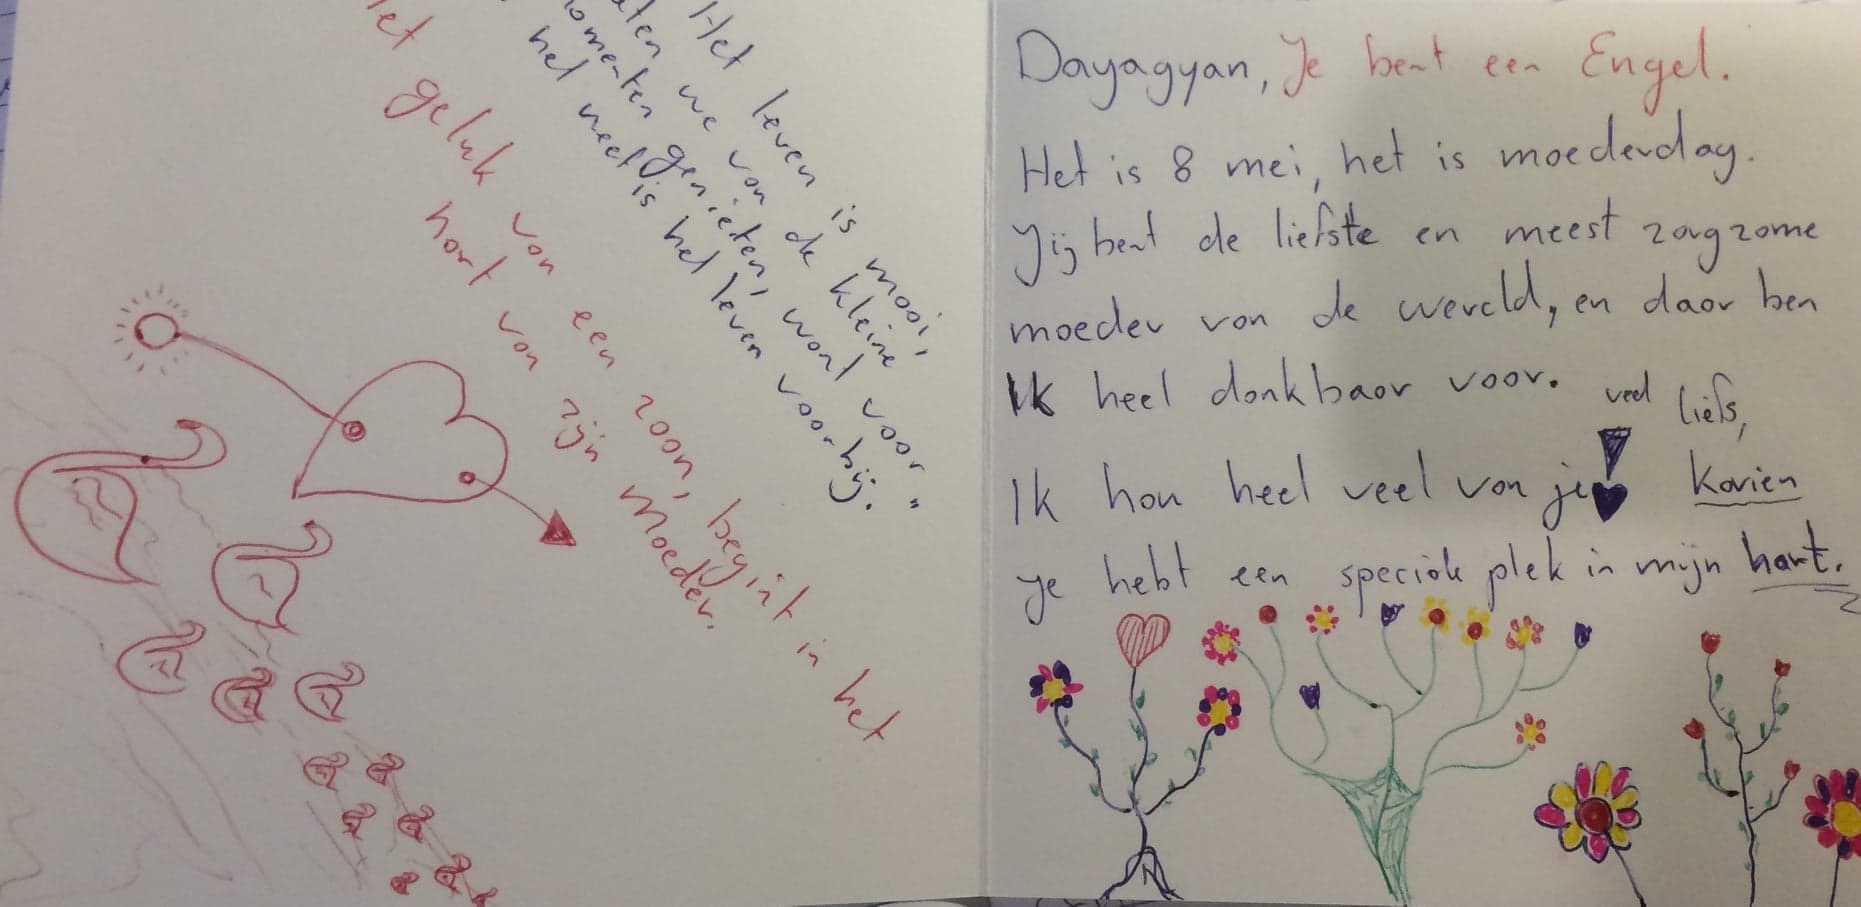 Het leven is mooi,
aten we van de kleine
omenten genieten, want voor "
het weet is het leven voorbij.
et geluk van een zoon, begint in het
hart van zijn moeder.
Dayagyan, Je bent een Engel.
Het is 8 mei, het is moederdag.
Jij bent de liefste en meest zorgzame
moeder van de wereld, en daar ben
Ik heel dankbaar voor.
veel liefs,
Ik hou heel veel van je
Karien
Je hebt een speciale plek in mijn hart.